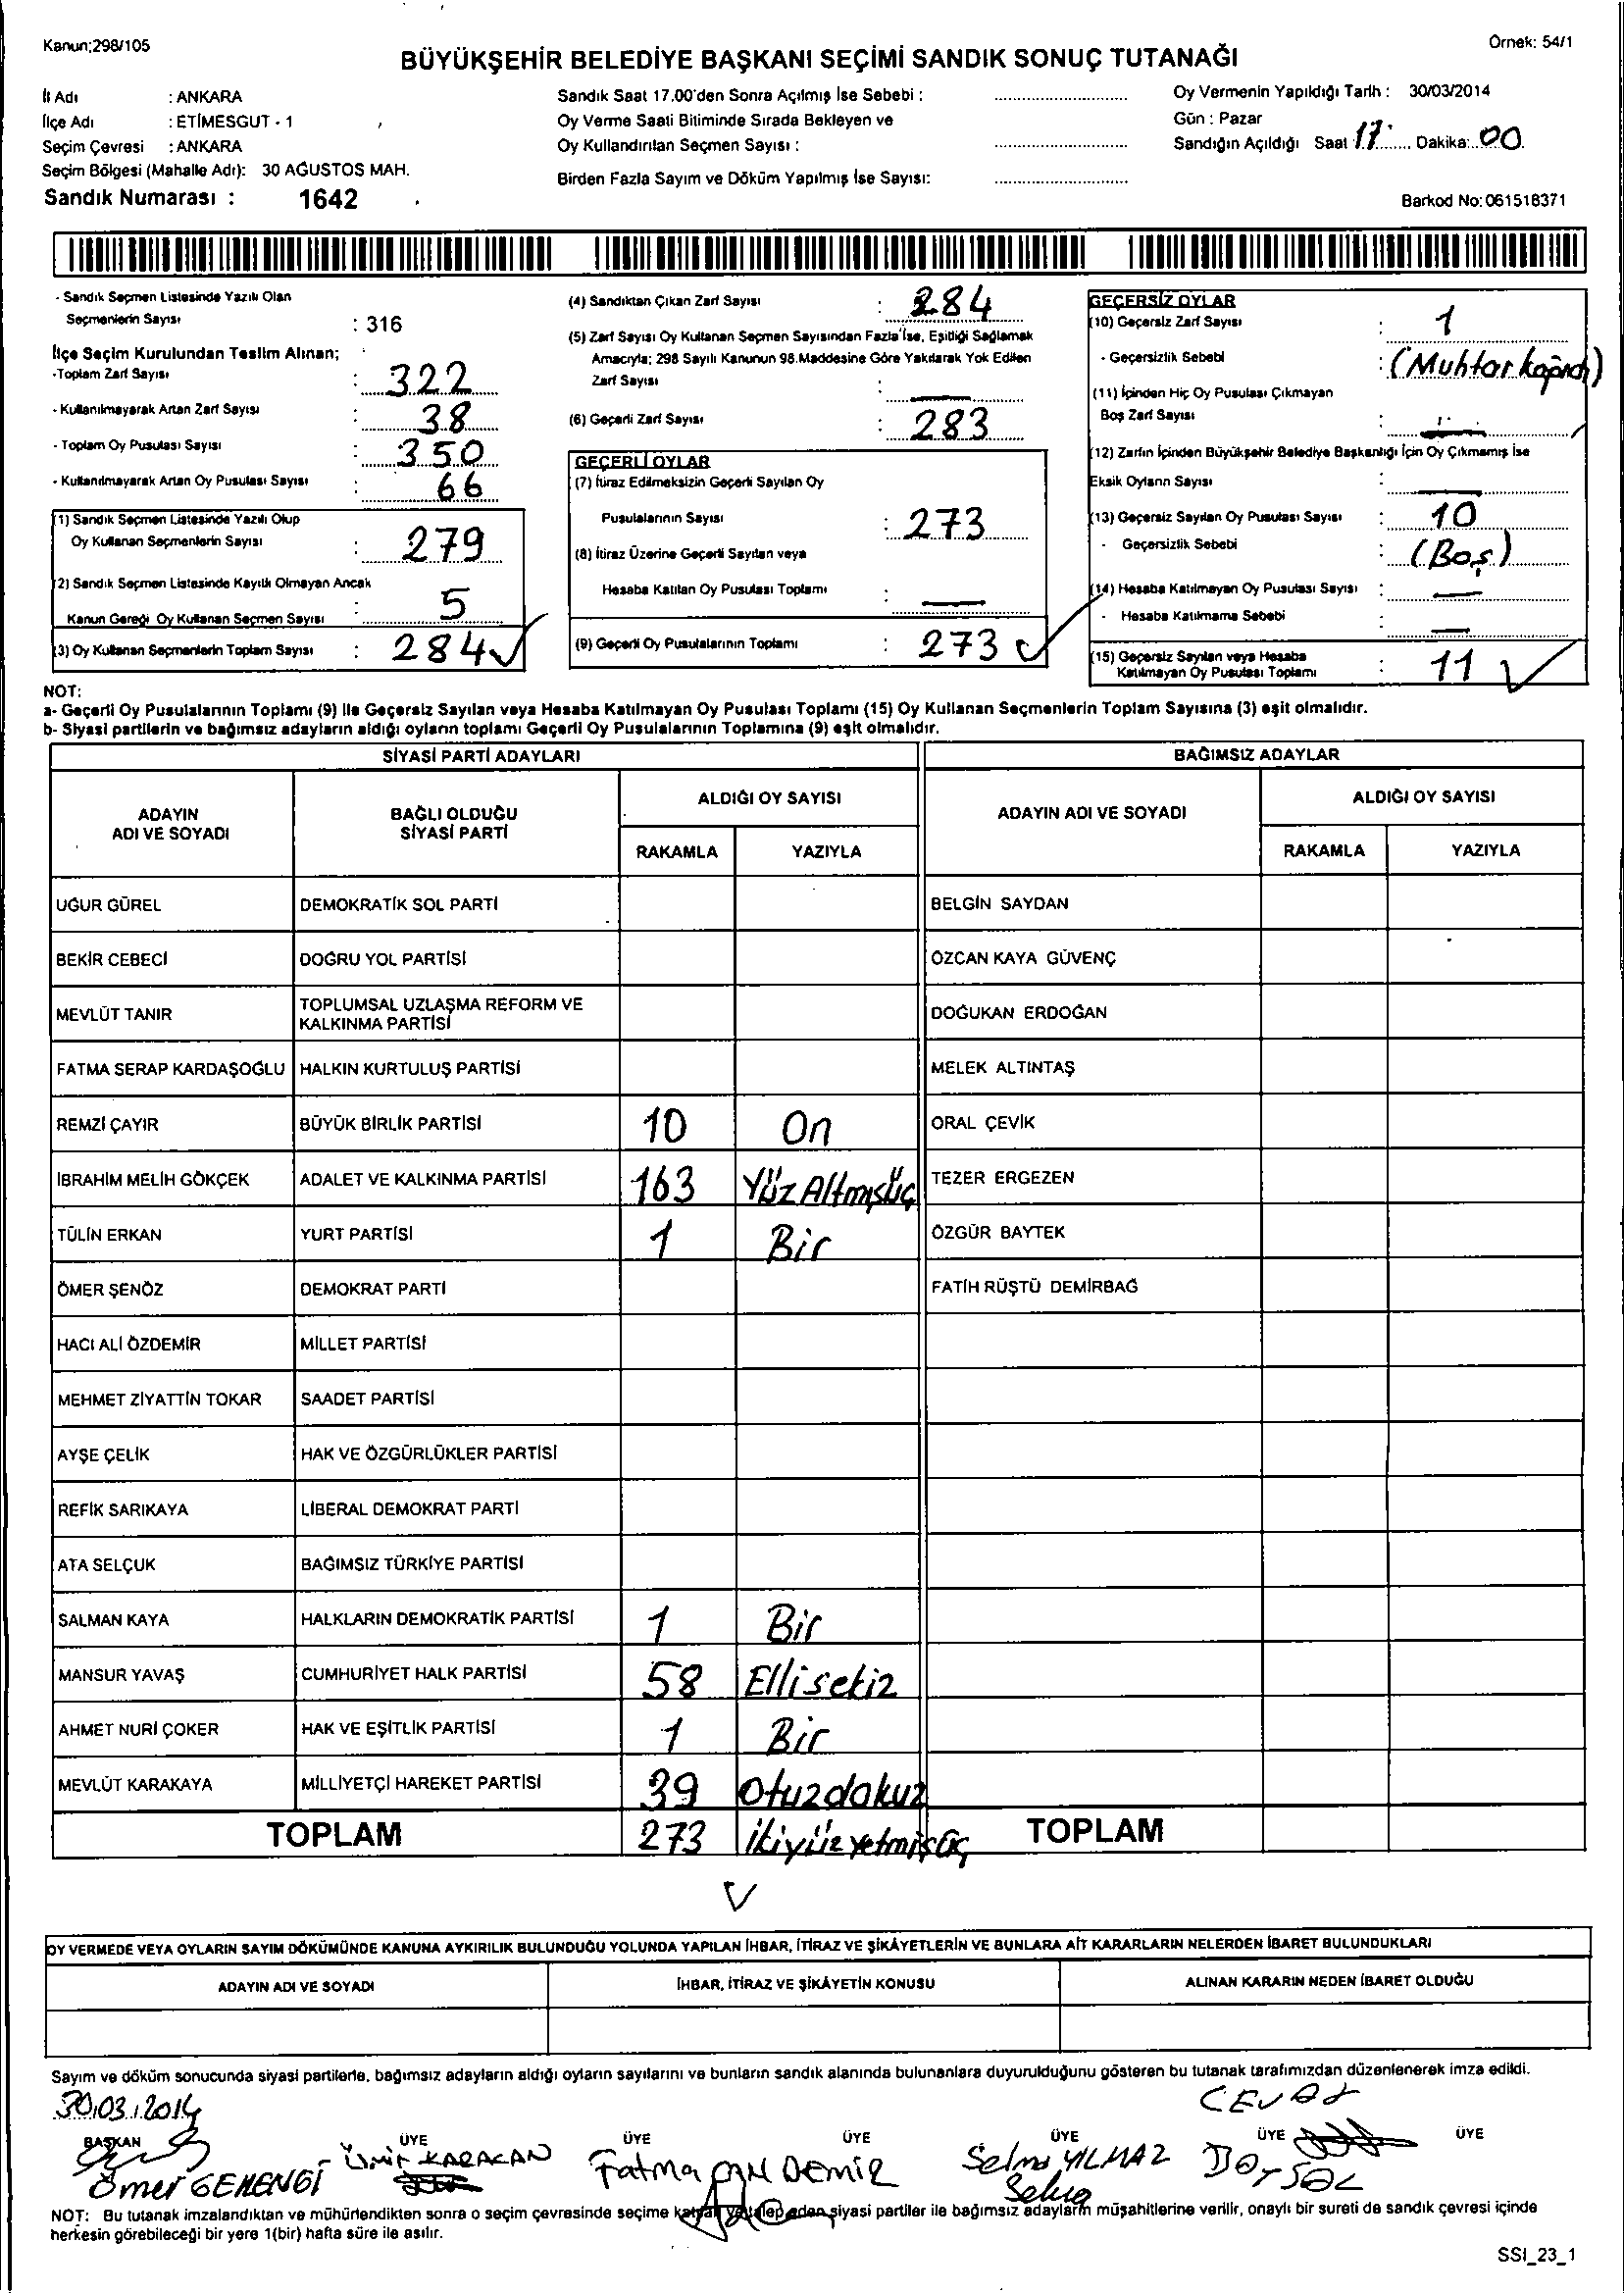 Kanun;298/105
Örnek: 54/1
BÜYÜKŞEHİR BELEDİYE BAŞKANI SEÇİMİ SANDIK SONUÇ TUTANAĞI
İl Adı : ANKARA
İlçe Adı : ETİMESGUT - 1
Seçim Çevresi : ANKARA
Seçim Bölgesi (Mahalle Adı): 30 AĞUSTOS MAH.
Sandık Numarası : 1642
Sandık Saat 17.00'den Sonra Açılmış İse Sebebi :
Oy Verme Saati Bitiminde Sırada Bekleyen ve
Oy Kullandırılan Seçmen Sayısı :
Birden Fazla Sayım ve Döküm Yapılmış İse Sayısı:
Oy Vermenin Yapıldığı Tarih : 30/03/2014
Gün : Pazar
Sandığın Açıldığı Saat 17 Dakika: 00
Barkod No: 061518371
- Sandık Seçmen Listesinde Yazılı Olan
Seçmenlerin Sayısı : 316
İlçe Seçim Kurulundan Teslim Alınan;
-Toplam Zarf Sayısı : 322
- Kullanılmayarak Artan Zarf Sayısı : 38
- Toplam Oy Pusulası Sayısı : 350
- Kullanılmayarak Artan Oy Pusulası Sayısı : 66
(1) Sandık Seçmen Listesinde Yazılı Olup
Oy Kullanan Seçmenlerin Sayısı : 279
(2) Sandık Seçmen Listesinde Kayıtlı Olmayan Ancak
Kanun Gereği Oy Kullanan Seçmen Sayısı : 5
(3) Oy Kullanan Seçmenlerin Toplam Sayısı : 284 ✓
(4) Sandıktan Çıkan Zarf Sayısı : 284
(5) Zarf Sayısı Oy Kullanan Seçmen Sayısından Fazla İse, Eşitliği Sağlamak
Amacıyla; 298 Sayılı Kanunun 98.Maddesine Göre Yakılarak Yok Edilen
Zarf Sayısı : —
(6) Geçerli Zarf Sayısı : 283
GEÇERLİ OYLAR
(7) İtiraz Edilmeksizin Geçerli Sayılan Oy
Pusulalarının Sayısı : 273
(8) İtiraz Üzerine Geçerli Sayılan veya
Hesaba Katılan Oy Pusulası Toplamı : —
(9) Geçerli Oy Pusulalarının Toplamı : 273 ✓
GEÇERSİZ OYLAR
(10) Geçersiz Zarf Sayısı : 1
- Geçersizlik Sebebi : (Muhtar kağıdı)
(11) İçinden Hiç Oy Pusulası Çıkmayan
Boş Zarf Sayısı : —
(12) Zarfın İçinden Büyükşehir Belediye Başkanlığı İçin Oy Çıkmamış İse
Eksik Oyların Sayısı : —
(13) Geçersiz Sayılan Oy Pusulası Sayısı : 10
- Geçersizlik Sebebi : (Boş)
(14) Hesaba Katılmayan Oy Pusulası Sayısı : —
- Hesaba Katılmama Sebebi : —
(15) Geçersiz Sayılan veya Hesaba
Katılmayan Oy Pusulası Toplamı : 11 ✓
NOT:
a- Geçerli Oy Pusulalarının Toplamı (9) ile Geçersiz Sayılan veya Hesaba Katılmayan Oy Pusulası Toplamı (15) Oy Kullanan Seçmenlerin Toplam Sayısına (3) eşit olmalıdır.
b- Siyasi partilerin ve bağımsız adayların aldığı oyların toplamı Geçerli Oy Pusulalarının Toplamına (9) eşit olmalıdır.
SİYASİ PARTİ ADAYLARI
BAĞIMSIZ ADAYLAR
ADAYIN ADI VE SOYADI
BAĞLI OLDUĞU SİYASİ PARTİ
ALDIĞI OY SAYISI
RAKAMLA YAZIYLA
ADAYIN ADI VE SOYADI
ALDIĞI OY SAYISI
RAKAMLA YAZIYLA
UĞUR GÜREL DEMOKRATİK SOL PARTİ BELGİN SAYDAN
BEKİR CEBECİ DOĞRU YOL PARTİSİ ÖZCAN KAYA GÜVENÇ
MEVLÜT TANIR TOPLUMSAL UZLAŞMA REFORM VE KALKINMA PARTİSİ DOĞUKAN ERDOĞAN
FATMA SERAP KARDAŞOĞLU HALKIN KURTULUŞ PARTİSİ MELEK ALTINTAŞ
REMZİ ÇAYIR BÜYÜK BİRLİK PARTİSİ 10 On ORAL ÇEVİK
İBRAHİM MELİH GÖKÇEK ADALET VE KALKINMA PARTİSİ 163 YüzAltmışüç TEZER ERGEZEN
TÜLİN ERKAN YURT PARTİSİ 1 Bir ÖZGÜR BAYTEK
ÖMER ŞENÖZ DEMOKRAT PARTİ FATİH RÜŞTÜ DEMİRBAĞ
HACI ALİ ÖZDEMİR MİLLET PARTİSİ
MEHMET ZİYATTİN TOKAR SAADET PARTİSİ
AYŞE ÇELİK HAK VE ÖZGÜRLÜKLER PARTİSİ
REFİK SARIKAYA LİBERAL DEMOKRAT PARTİ
ATA SELÇUK BAĞIMSIZ TÜRKİYE PARTİSİ
SALMAN KAYA HALKLARIN DEMOKRATİK PARTİSİ 1 Bir
MANSUR YAVAŞ CUMHURİYET HALK PARTİSİ 58 Ellisekiz
AHMET NURİ ÇOKER HAK VE EŞİTLİK PARTİSİ 1 Bir
MEVLÜT KARAKAYA MİLLİYETÇİ HAREKET PARTİSİ 39 Otuzdokuz
TOPLAM 273 ikiyüzyetmişüç TOPLAM
✓
OY VERMEDE VEYA OYLARIN SAYIM DÖKÜMÜNDE KANUNA AYKIRILIK BULUNDUĞU YOLUNDA YAPILAN İHBAR, İTİRAZ VE ŞİKÂYETLERİN VE BUNLARA AİT KARARLARIN NELERDEN İBARET BULUNDUKLARI
ADAYIN ADI VE SOYADI İHBAR, İTİRAZ VE ŞİKÂYETİN KONUSU ALINAN KARARIN NEDEN İBARET OLDUĞU
Sayım ve döküm sonucunda siyasi partilerle, bağımsız adayların aldığı oyların sayılarını ve bunların sandık alanında bulunanlara duyurulduğunu gösteren bu tutanak tarafımızdan düzenlenerek imza edildi.
30.03.2014
CEVAT
BAŞKAN ÜYE ÜYE ÜYE ÜYE ÜYE ÜYE
Ömer Ümit KARACAN Fatma DEMİR Selma YILMAZ
NOT: Bu tutanak imzalandıktan ve mühürlendikten sonra o seçim çevresinde seçime katılan ve talep eden siyasi partiler ile bağımsız adayların müşahitlerine verilir, onaylı bir sureti de sandık çevresi içinde
herkesin görebileceği bir yere 1(bir) hafta süre ile asılır.
SSI_23_1